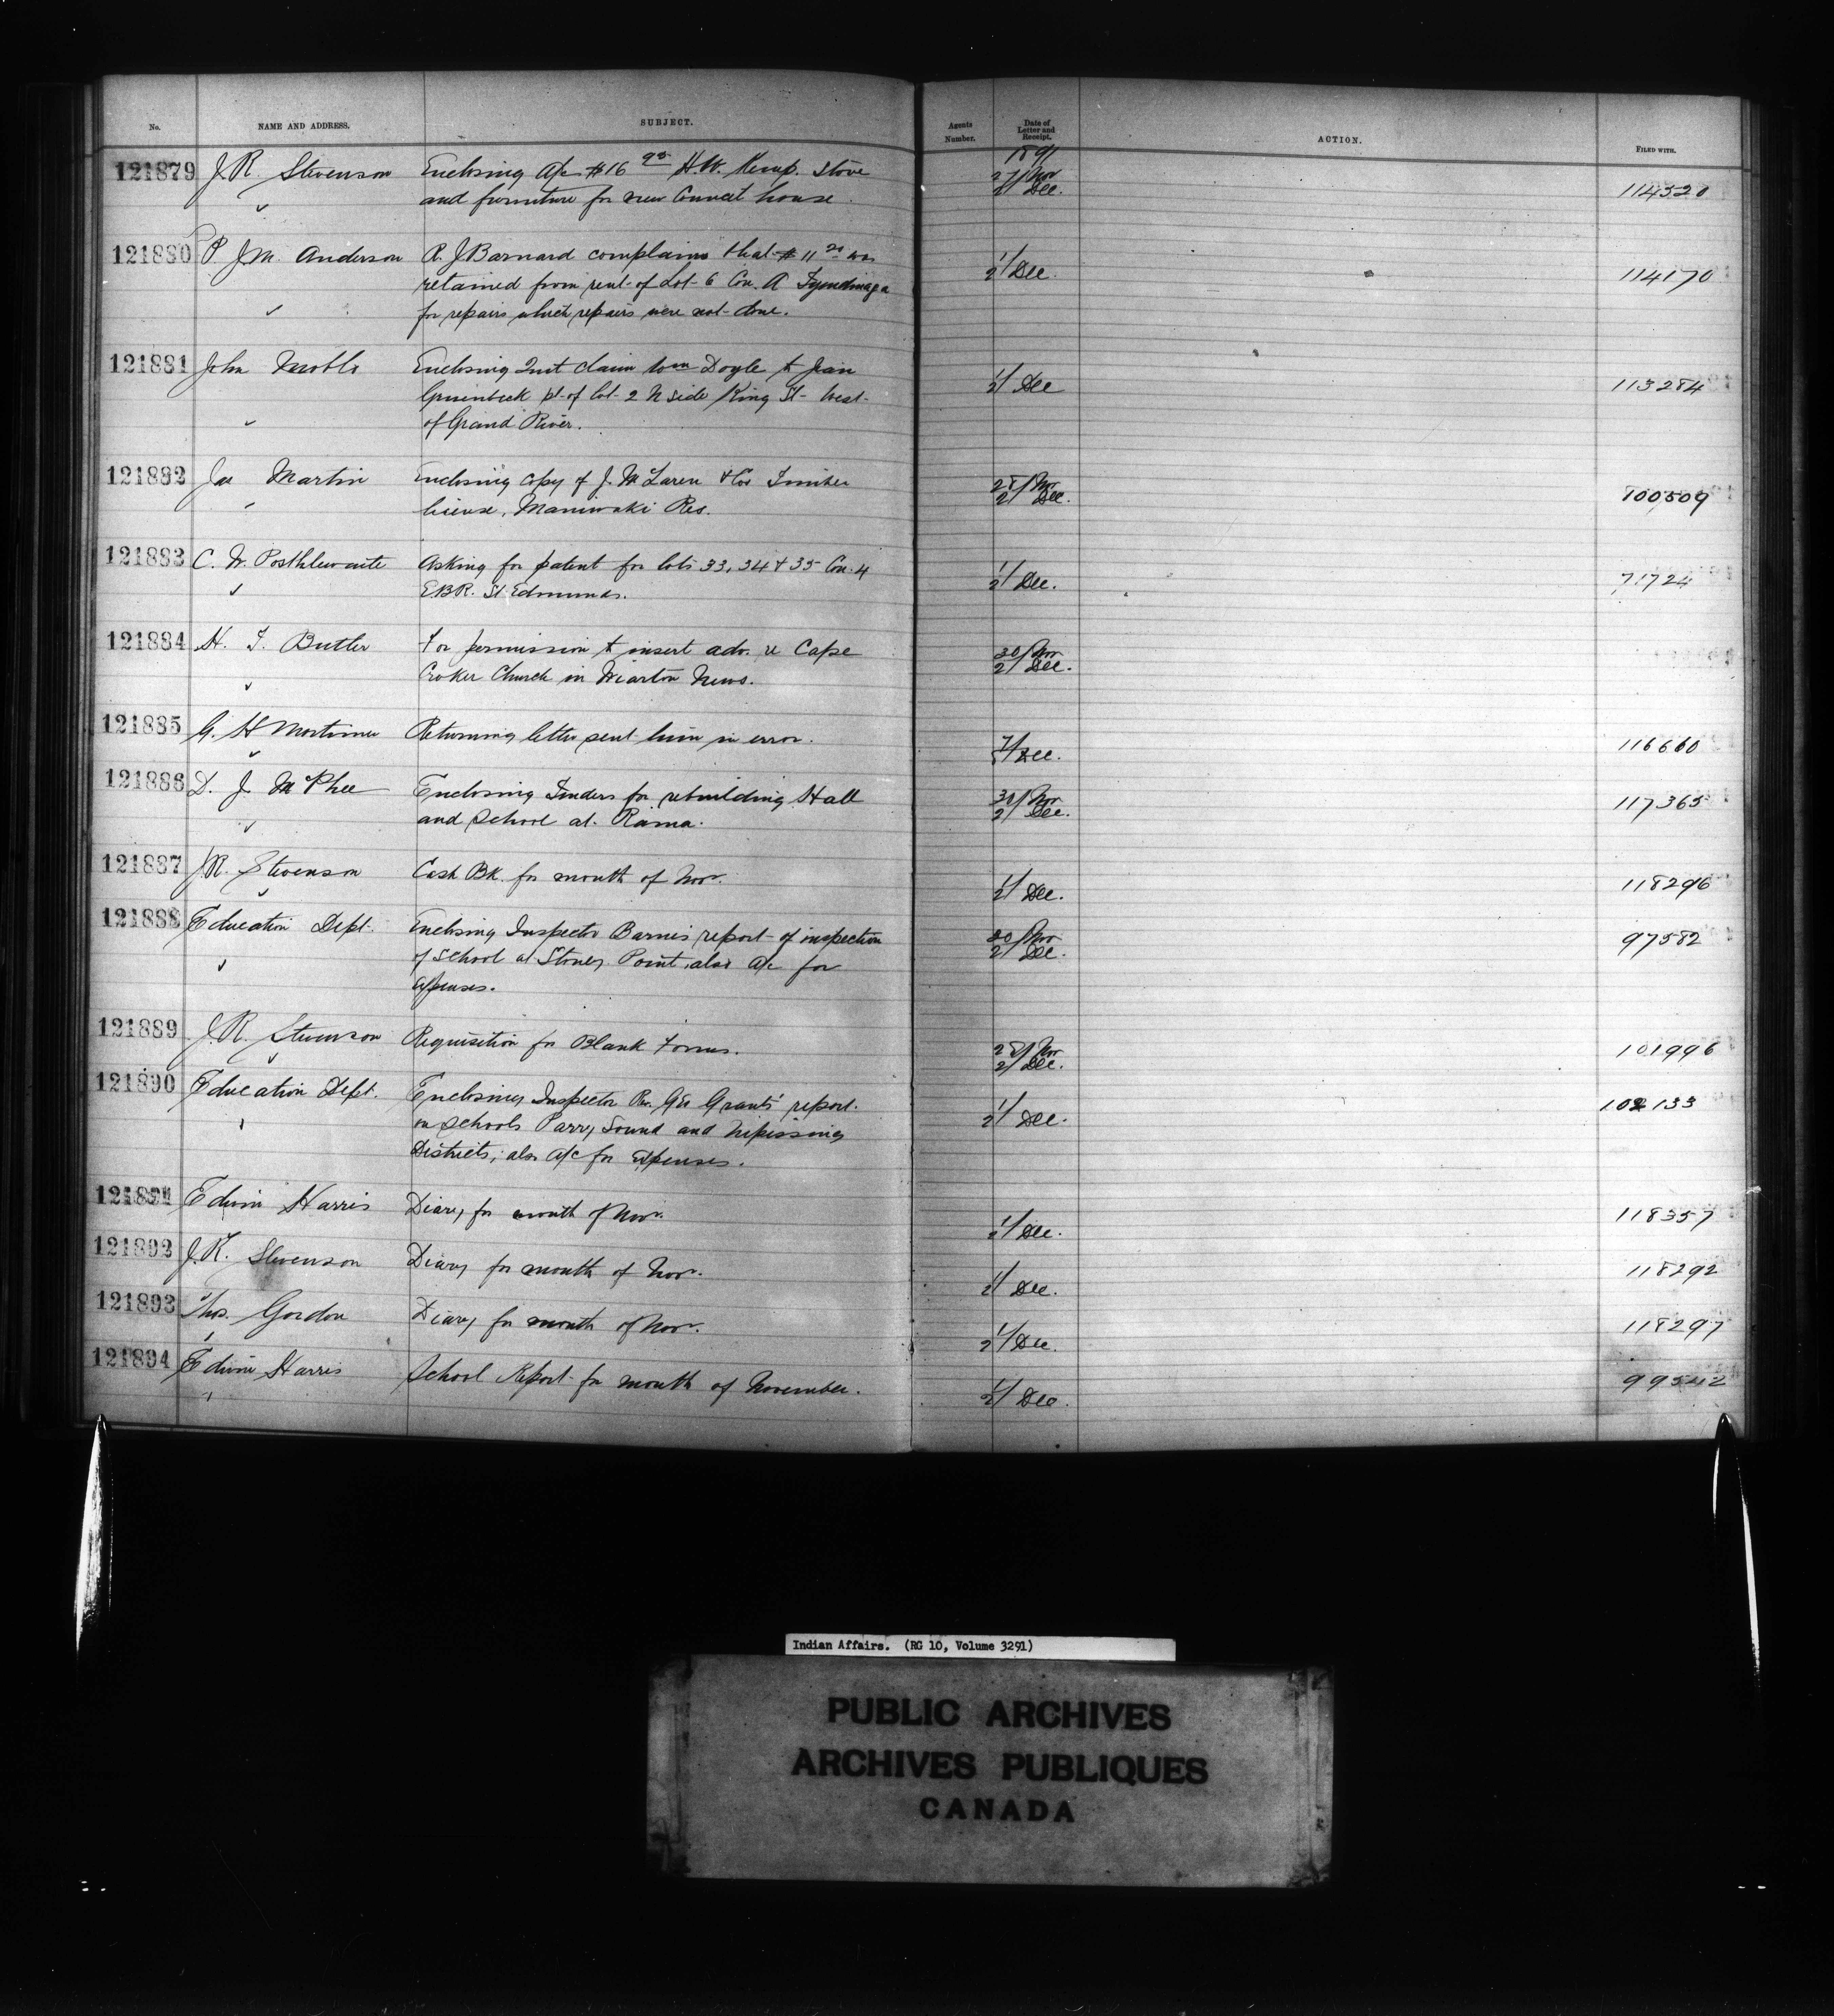 No. NAME AND ADDRESS. SUBJECT. Agents Number. Date of Letter and Receipt. ACTION. FILED WITH.
1891
121879 J.R. Stevenson Enclosing a/c $16 H.W. Kemp. Stove 27/Nov
and furniture for new Council house 2/Dec. 114320
121880 P J.M. Anderson R. J Barnard complains that $11 was 1/
retained from rent of Lot 6 Con. A Tyendinaga 2/Dec. 114170
for repairs which repairs were not done.
121881 John Enclosing Quit claim Wm Doyle to Jean 1/
pt of lot 2 N side King St West 2/Dec 113284
of Grand River.
121882 Jas Martin Enclosing copy of J. McLaren & Co's Timber 28/Nov
license, Maniwaki Res. 2/Dec. 100509
121883 C. W. Posthlewaite Asking for patent for lots 33, 34 & 35 Con. 4 1/
E.B.R. St Edmunds. 2/Dec. 71724
121884 H. T. Butler For permission to insert adv. re Cape 30/Nov
Croker Church in Wiarton News. 2/Dec.
121885 G. H Mortimer Returning letter sent him in error. /Dec. 116660
121886 D. J. McPhee Enclosing Tenders for rebuilding Hall 30/Nov 117365
and School at Rama. 2/Dec.
121887 J.R. Stevenson Cash Bk. for month of Nov. 1/2/Dec. 118296
121888 Education Dept. Enclosing Inspector Barnes report of inspection 30/Nov 97582
of School at Stoney Point, also a/c for 2/Dec.
expenses.
121889 J.R. Stevenson Requisition for Blank Forms. 28/Nov 2/Dec. 101996
121890 Education Dept. Enclosing Inspector Rev. Geo Grants' report 1/ 102133
on schools Parry Sound and Nipissing 2/Dec.
Districts; also a/c for Expenses.
121891 Edwin Harris Diary for month of Nov. 1/2/Dec. 118357
121892 J.R. Stevenson Diary for month of Nov. 1/2/Dec. 118292
121893 Thos. Gordon Diary for month of Nov. 1/2/Dec. 118297
121894 Edwin Harris School Report for month of November. 1/2/Dec. 99542
Indian Affairs. (RG 10, Volume 3291)
PUBLIC ARCHIVES
ARCHIVES PUBLIQUES
CANADA